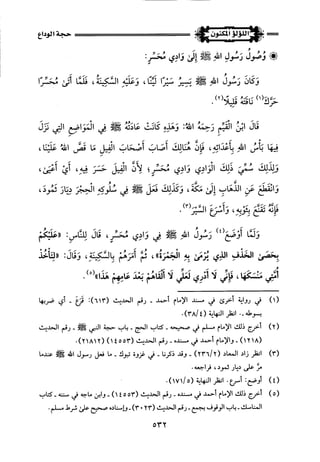 اللؤلؤ المكنون
حجة الوداع
* وُصُولُ رَسُولِ اللهِ ﷺ إِلَى وَادِي مُحَسِّرٍ:
وَكَانَ رَسُولُ اللهِ ﷺ يَسِيرُ سَيْرًا لَيِّنًا، وَعَلَيْهِ السَّكِينَةُ، فَلَمَّا أَتَى مُحَسِّرًا
حَرَّكَ(١) نَاقَتَهُ قَلِيلًا(٢).
قَالَ ابْنُ الْقَيِّمِ رَحِمَهُ اللهُ: وَهَذِهِ كَانَتْ عَادَتُهُ ﷺ فِي الْمَوَاضِعِ التِي نَزَلَ
فِيهَا بَأْسُ اللهِ بِأَعْدَائِهِ، فَإِنَّ هُنَالِكَ أَصَابَ أَصْحَابَ الْفِيلِ مَا قَصَّ اللهُ عَلَيْنَا،
وَلِذَلِكَ سُمِّيَ ذَلِكَ الْوَادِي وَادِي مُحَسِّرٍ؛ لِأَنَّ الْفِيلَ حَسَرَ فِيهِ، أَيْ أَعْيَى،
وَانْقَطَعَ عَنِ الذَّهَابِ إِلَى مَكَّةَ، وَكَذَلِكَ فَعَلَ ﷺ فِي سُلُوكِهِ الْحِجْرَ دِيَارَ ثَمُودَ،
فَإِنَّهُ تَقَنَّعَ بِثَوْبِهِ، وَأَسْرَعَ السَّيْرَ(٣).
وَلَمَّا أَوْضَعَ(٤) رَسُولُ اللهِ ﷺ فِي وَادِي مُحَسِّرٍ، قَالَ لِلنَّاسِ: «عَلَيْكُمْ
بِحَصَى الْخَذْفِ الذِي يُرْمَى بِهِ الْجَمْرَةُ»، ثُمَّ أَمَرَهُمْ بِالسَّكِينَةِ، وَقَالَ: «لِتَأْخُذْ
أُمَّتِي مَنْسَكَهَا، فَإِنِّي لَا أَدْرِي لَعَلِّي لَا أَلْقَاهُمْ بَعْدَ عَامِهِمْ هَذَا»(٥).
(١) في رواية أخرى في مسند الإمام أحمد - رقم الحديث (٦١٣): قرع - أي ضربها
بسوطه.. انظر النهاية (٣٨/٤).
(٢) أخرج ذلك الإمام مسلم في صحيحه - كتاب الحج - باب حجة النبي ﷺ - رقم الحديث
(١٢١٨) - والإمام أحمد في مسنده - رقم الحديث (١٤٥٥٣) (٢١٨١٢).
(٣) انظر زاد المعاد (٢٣٦/٢) - وقد ذكرنا - في غزوة تبوك - ما فعل رسول الله ﷺ عندما
مرَّ على ديار ثمود، فراجعه.
(٤) أوضع: أسرع. انظر النهاية (١٧١/٥).
(٥) أخرج ذلك الإمام أحمد في مسنده - رقم الحديث (١٤٥٥٣) - وابن ماجه في سننه - كتاب
المناسك - باب الوقوف بجمع - رقم الحديث (٣٠٢٣) - وإسناده صحيح على شرط مسلم.
٥٣٢